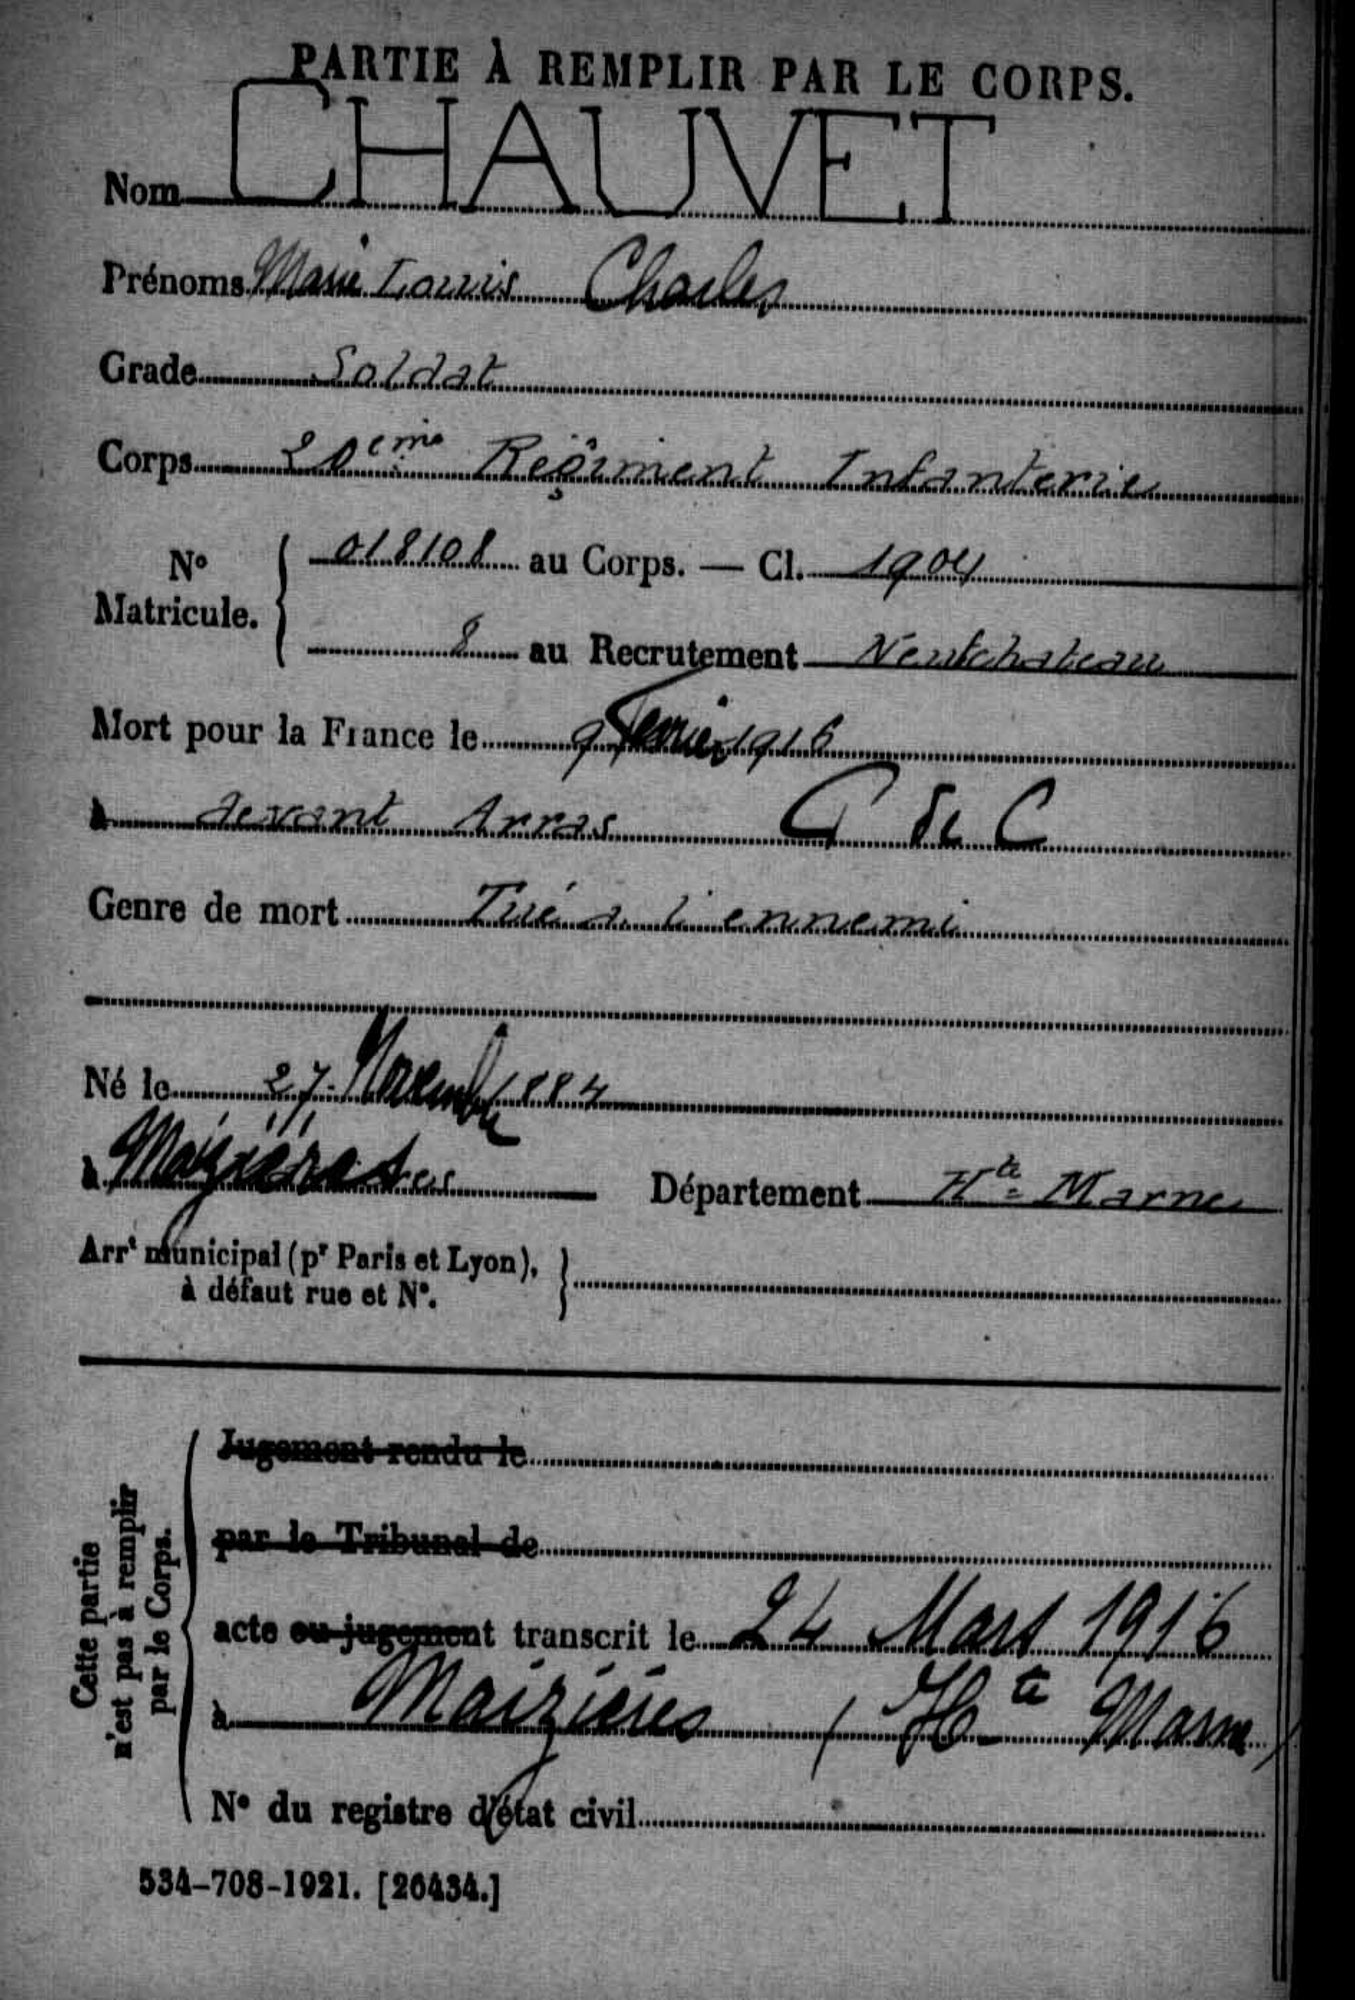 PARTIE À REMPLIR PAR LE CORPS.
Nom CHAUVET
Prénoms Marie Louis Charles
Grade Soldat
Corps 20eme Régiment Infanterie
No Matricule. { 018108 au Corps. — Cl. 1904
8 au Recrutement Neufchateau
Mort pour la France le 9 Fevrier 1916
à devant Arras C de C
Genre de mort Tué a l'ennemi
Né le 27 Novembre 1884
à Département Hte Marne
Arrt municipal (pr Paris et Lyon),
à défaut rue et No.
Cette partie
n'est pas à remplir
par le Corps.
Jugement rendu le
par le Tribunal de
acte ou jugement transcrit le 24 Mars 1916
à Maizières (Hte Marne)
No du registre d'état civil
534-708-1921. [26434.]